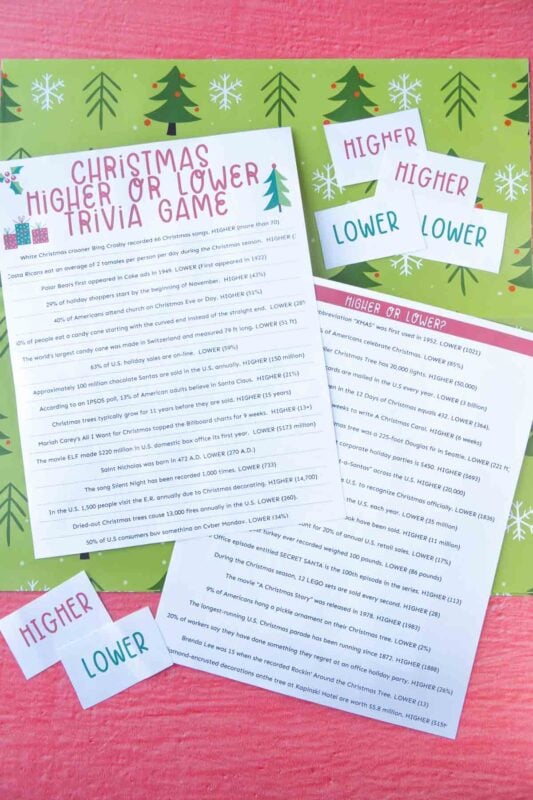 CHRISTMAS
HIGHER OR LOWER
TRIVIA GAME
White Christmas crooner Bing Crosby recorded 66 Christmas songs. HIGHER (more than 70)
Costa Ricans eat an average of 2 tamales per person per day during the Christmas season. HIGHER (
Polar Bears first appeared in Coke ads in 1949. LOWER (First appeared in 1922)
29% of holiday shoppers start by the beginning of November. HIGHER (43%)
40% of Americans attend church on Christmas Eve or Day. HIGHER (51%)
0% of people eat a candy cane starting with the curved end instead of the straight end. LOWER (28%
The world's largest candy cane was made in Switzerland and measured 79 ft long. LOWER (51 ft)
63% of U.S. holiday sales are on-line. LOWER (59%)
Approximately 100 million chocolate Santas are sold in the U.S. annually. HIGHER (150 million)
According to an IPSOS poll, 13% of American adults believe in Santa Claus. HIGHER (21%)
Christmas trees typically grow for 11 years before they are sold. HIGHER (15 years)
Mariah Carey's All I Want for Christmas topped the Billboard charts for 9 weeks. HIGHER (13+)
The movie ELF made $220 million in U.S. domestic box office its first year. LOWER ($173 million)
Saint Nicholas was born in 472 A.D. LOWER (270 A.D.)
The song Silent Night has been recorded 1,000 times. LOWER (733)
In the U.S. 1,500 people visit the E.R. annually due to Christmas decorating. HIGHER (14,700)
Dried-out Christmas trees cause 13,000 fires annually in the U.S. LOWER (260).
50% of U.S consumers buy something on Cyber Monday. LOWER (34%)
HIGHER
HIGHER
LOWER
LOWER
HIGHER OR LOWER?
bbreviation "XMAS" was first used in 1952. LOWER (1021)
of Americans celebrate Christmas. LOWER (85%)
ler Christmas Tree has 20,000 lights. HIGHER (50,000)
ards are mailed in the U.S. every year. LOWER (3 billion)
en in the 12 Days of Christmas equals 432. LOWER (364).
weeks to write A Christmas Carol. HIGHER (6 weeks)
tree was a 225-foot Douglas fir in Seattle. LOWER (221 ft
corporate holiday parties is $450. HIGHER ($693)
-a-Santas" across the U.S. HIGHER (20,000)
U.S. to recognize Christmas officially. LOWER (1836)
the U.S. each year. LOWER (35 million)
ook have been sold. HIGHER (11 million)
unt for 20% of annual U.S. retail sales. LOWER (17%)
turkey ever recorded weighed 100 pounds. LOWER (86 pounds)
Office episode entitled SECRET SANTA is the 100th episode in the series. HIGHER (113)
During the Christmas season, 12 LEGO sets are sold every second. HIGHER (28)
The movie "A Christmas Story" was released in 1978. HIGHER (1983)
9% of Americans hang a pickle ornament on their Christmas tree. LOWER (2%)
The longest-running U.S. Christmas parade has been running since 1872. HIGHER (1888)
20% of workers say they have done something they regret at an office holiday party. HIGHER (26%)
Brenda Lee was 15 when she recorded Rockin' Around the Christmas Tree. LOWER (13)
amond-encrusted decorations onthe tree at Kapinski Hotel are worth $5.8 million. HIGHER ($15+
HIGHER
LOWER